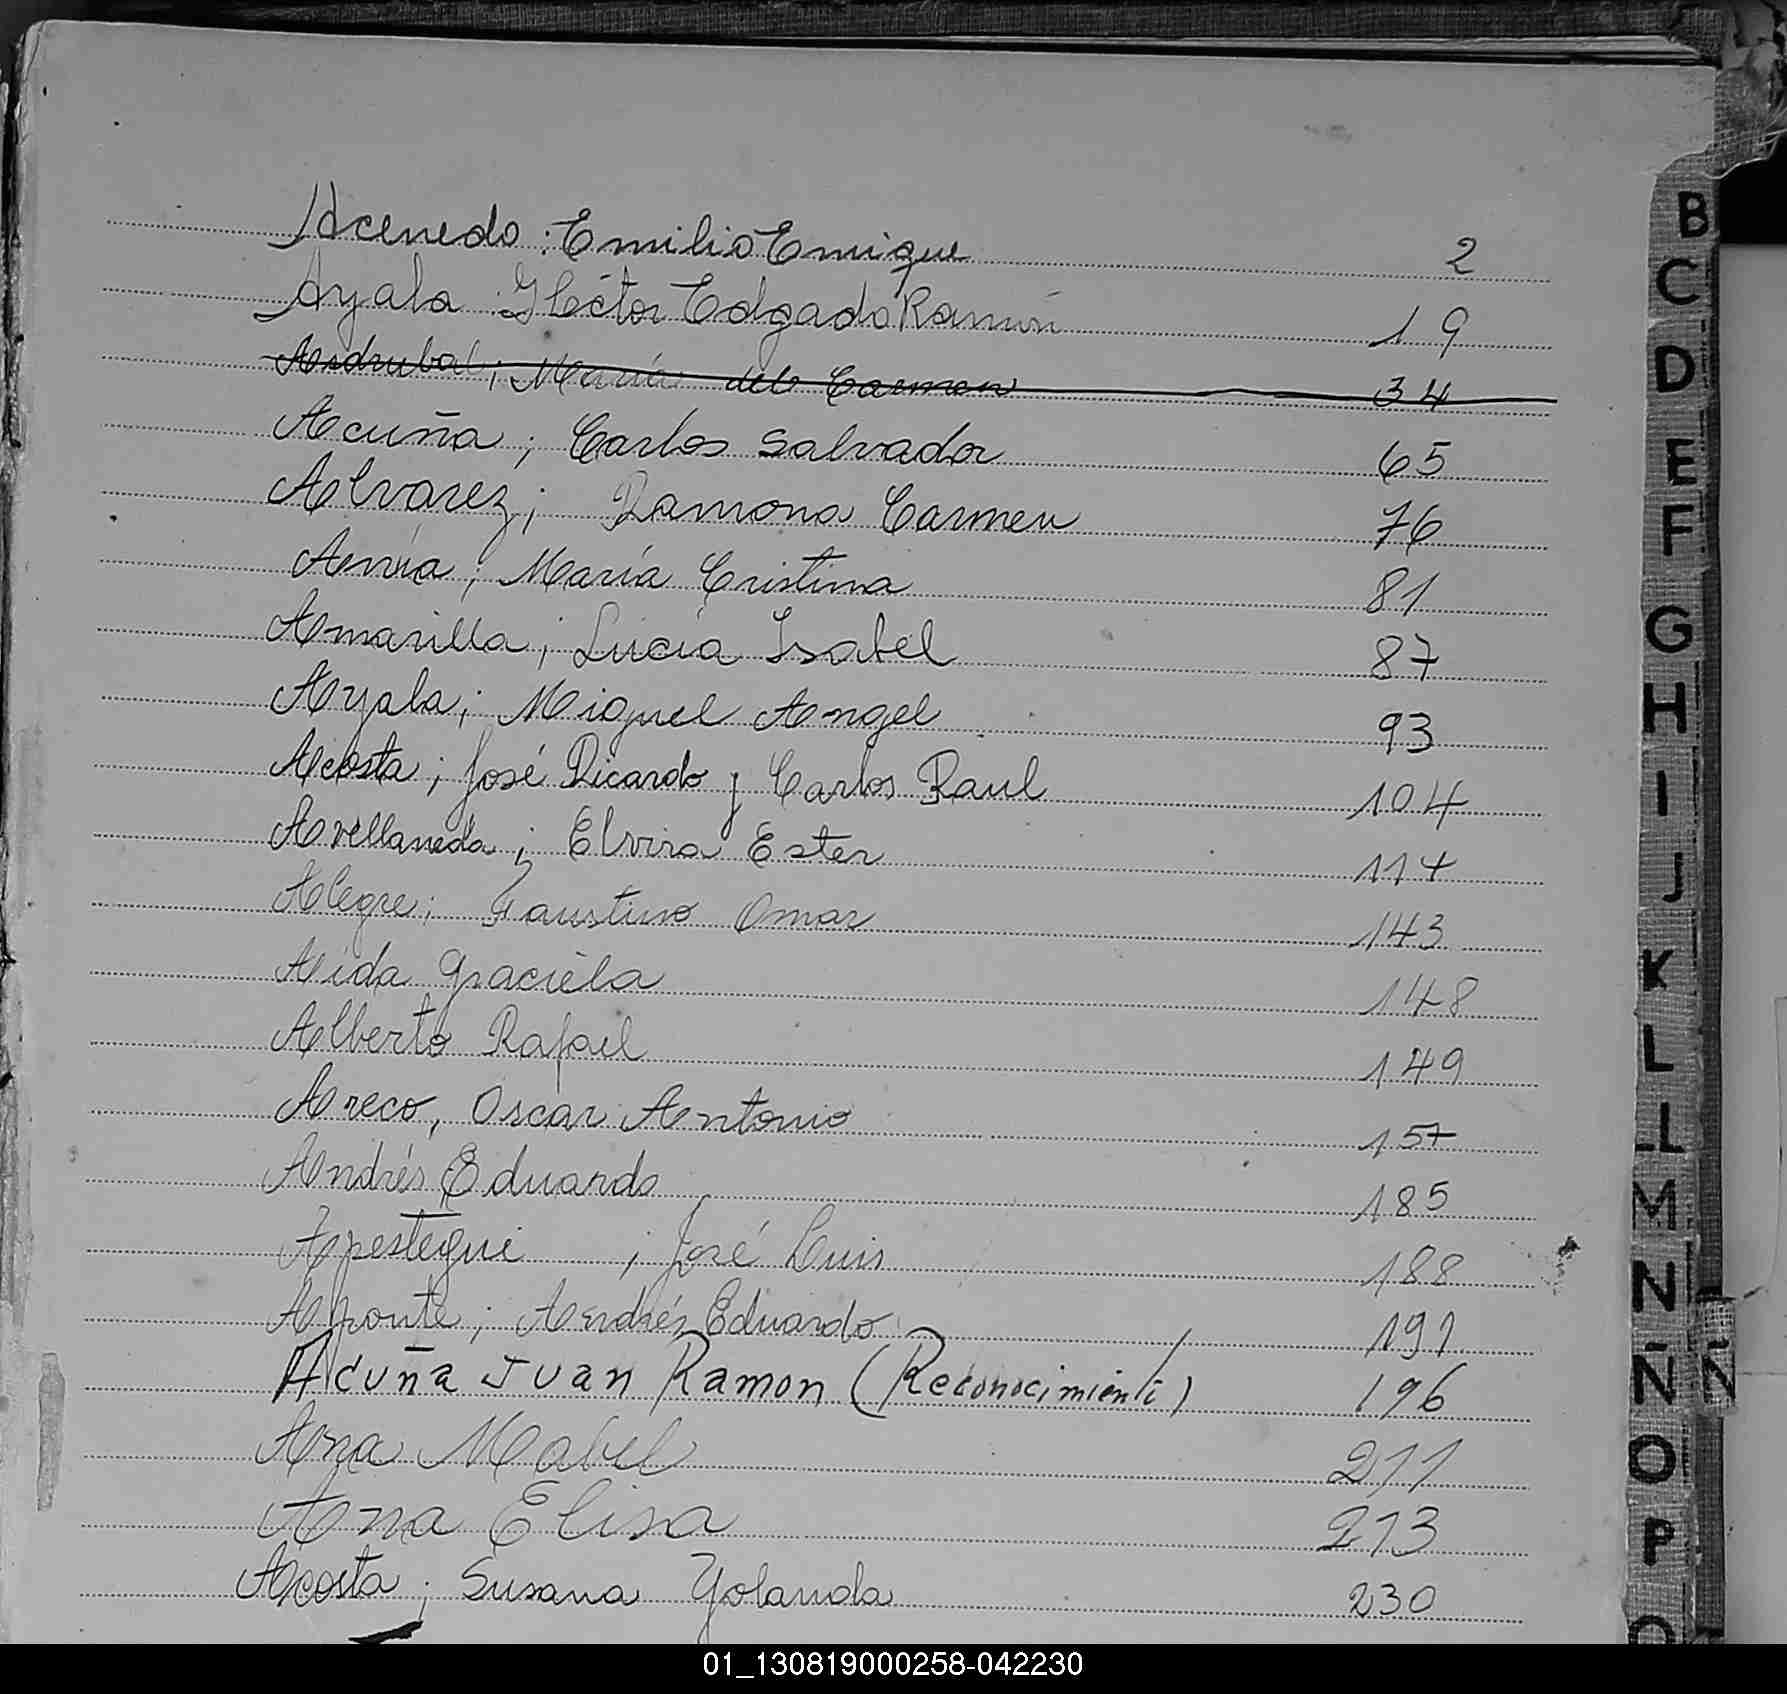 Acevedo : Emilio Enrique 2
Ayala : Héctor Edgado Ramón 19
Asdrubal ; María del Carmen 34
Acuña ; Carlos Salvador 65
Alvarez ; Ramona Carmen 76
María Cristina 81
Amarilla ; Lucía Isabel 87
Ayala ; Miguel Angel 93
Acosta ; José Ricardo y Carlos Raul 104
Avellaneda ; Elvira Ester 114
Alegre ; Faustino Omar 143
Aida Graciela 148
Alberto Rafael 149
Areco, Oscar Antonio 157
Andrés Eduardo 185
Apestegui ; José Luis 188
Aponte ; Andrés Eduardo 191
Acuña Juan Ramon (Reconocimiento) 196
Ana Mabel 211
Ana Elisa 213
Acosta ; Susana Yolanda 230
B
C
D
E
F
G
H
I
J
K
L
LL
M
N
Ñ
Ñ
O
P
01_130819000258-042230